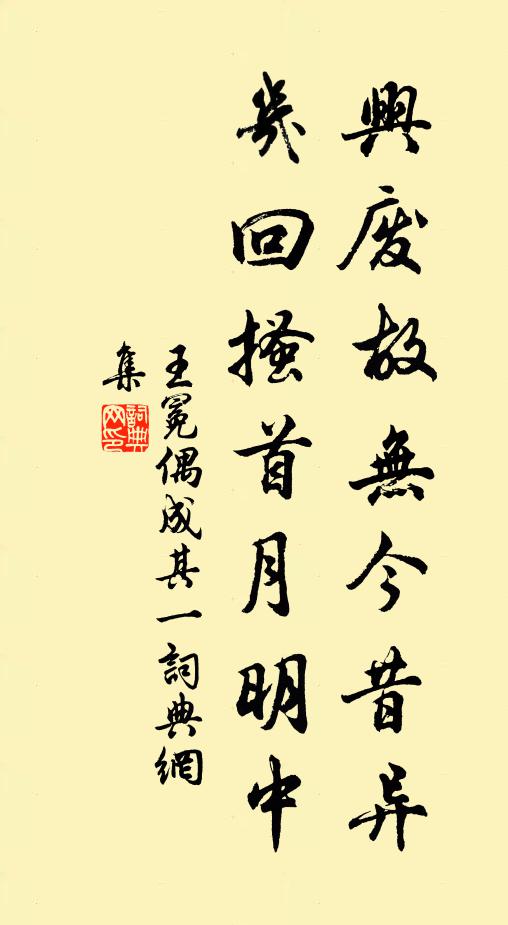 興廢故無今昔异
幾回搔首月明中
王冕偶成其一詞典網
集
詞典網印